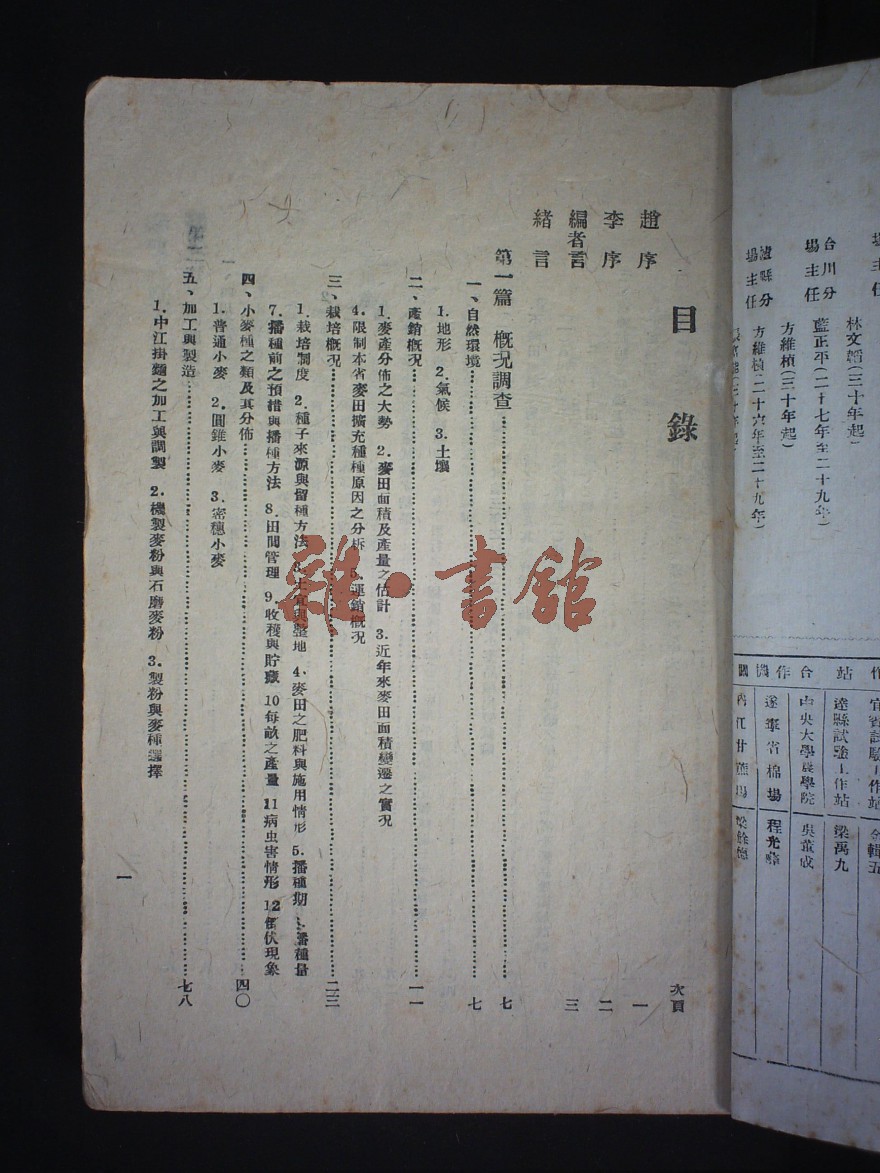 目錄
次頁
趙序 一
李序 二
編者言 三
緒言
第一篇 概況調查 七
一、自然環境 七
1.地形 2.氣候 3.土壤
二、產銷概況 一一
1.麥產分佈之大勢 2.麥田面積及產量之估計 3.近年來麥田面積變遷之實況
4.限制本省麥田擴充種種原因之分析 5.運銷概況
三、栽培概況 二三
1.栽培制度 2.種子來源與留種方法 3.土宜與整地 4.麥田之肥料與施用情形 5.播種期 播種量
7.播種前之預措與播種方法 8.田間管理 9.收穫與貯藏 10每畝之產量 11病虫害情形 12倒伏現象
四、小麥種之類及其分佈 四〇
1.普通小麥 2.圓錐小麥 3.密穗小麥
五、加工與製造 七八
1.中江掛麵之加工與調製 2.機製麥粉與石磨麥粉 3.製粉與麥種選擇
一
雜·書館
林文韜(三十年起)
合川分場主任
藍正平(二十七年至二十九年)
方維楨(三十年起)
瀘縣分場主任
方維楨(二十六年至二十九年)
合作機關
宜賓試驗工作站 金輯五
達縣試驗工作站 梁禹九
中央大學農學院 吳董成
遂寧省棉場 程光
內江甘蔗場